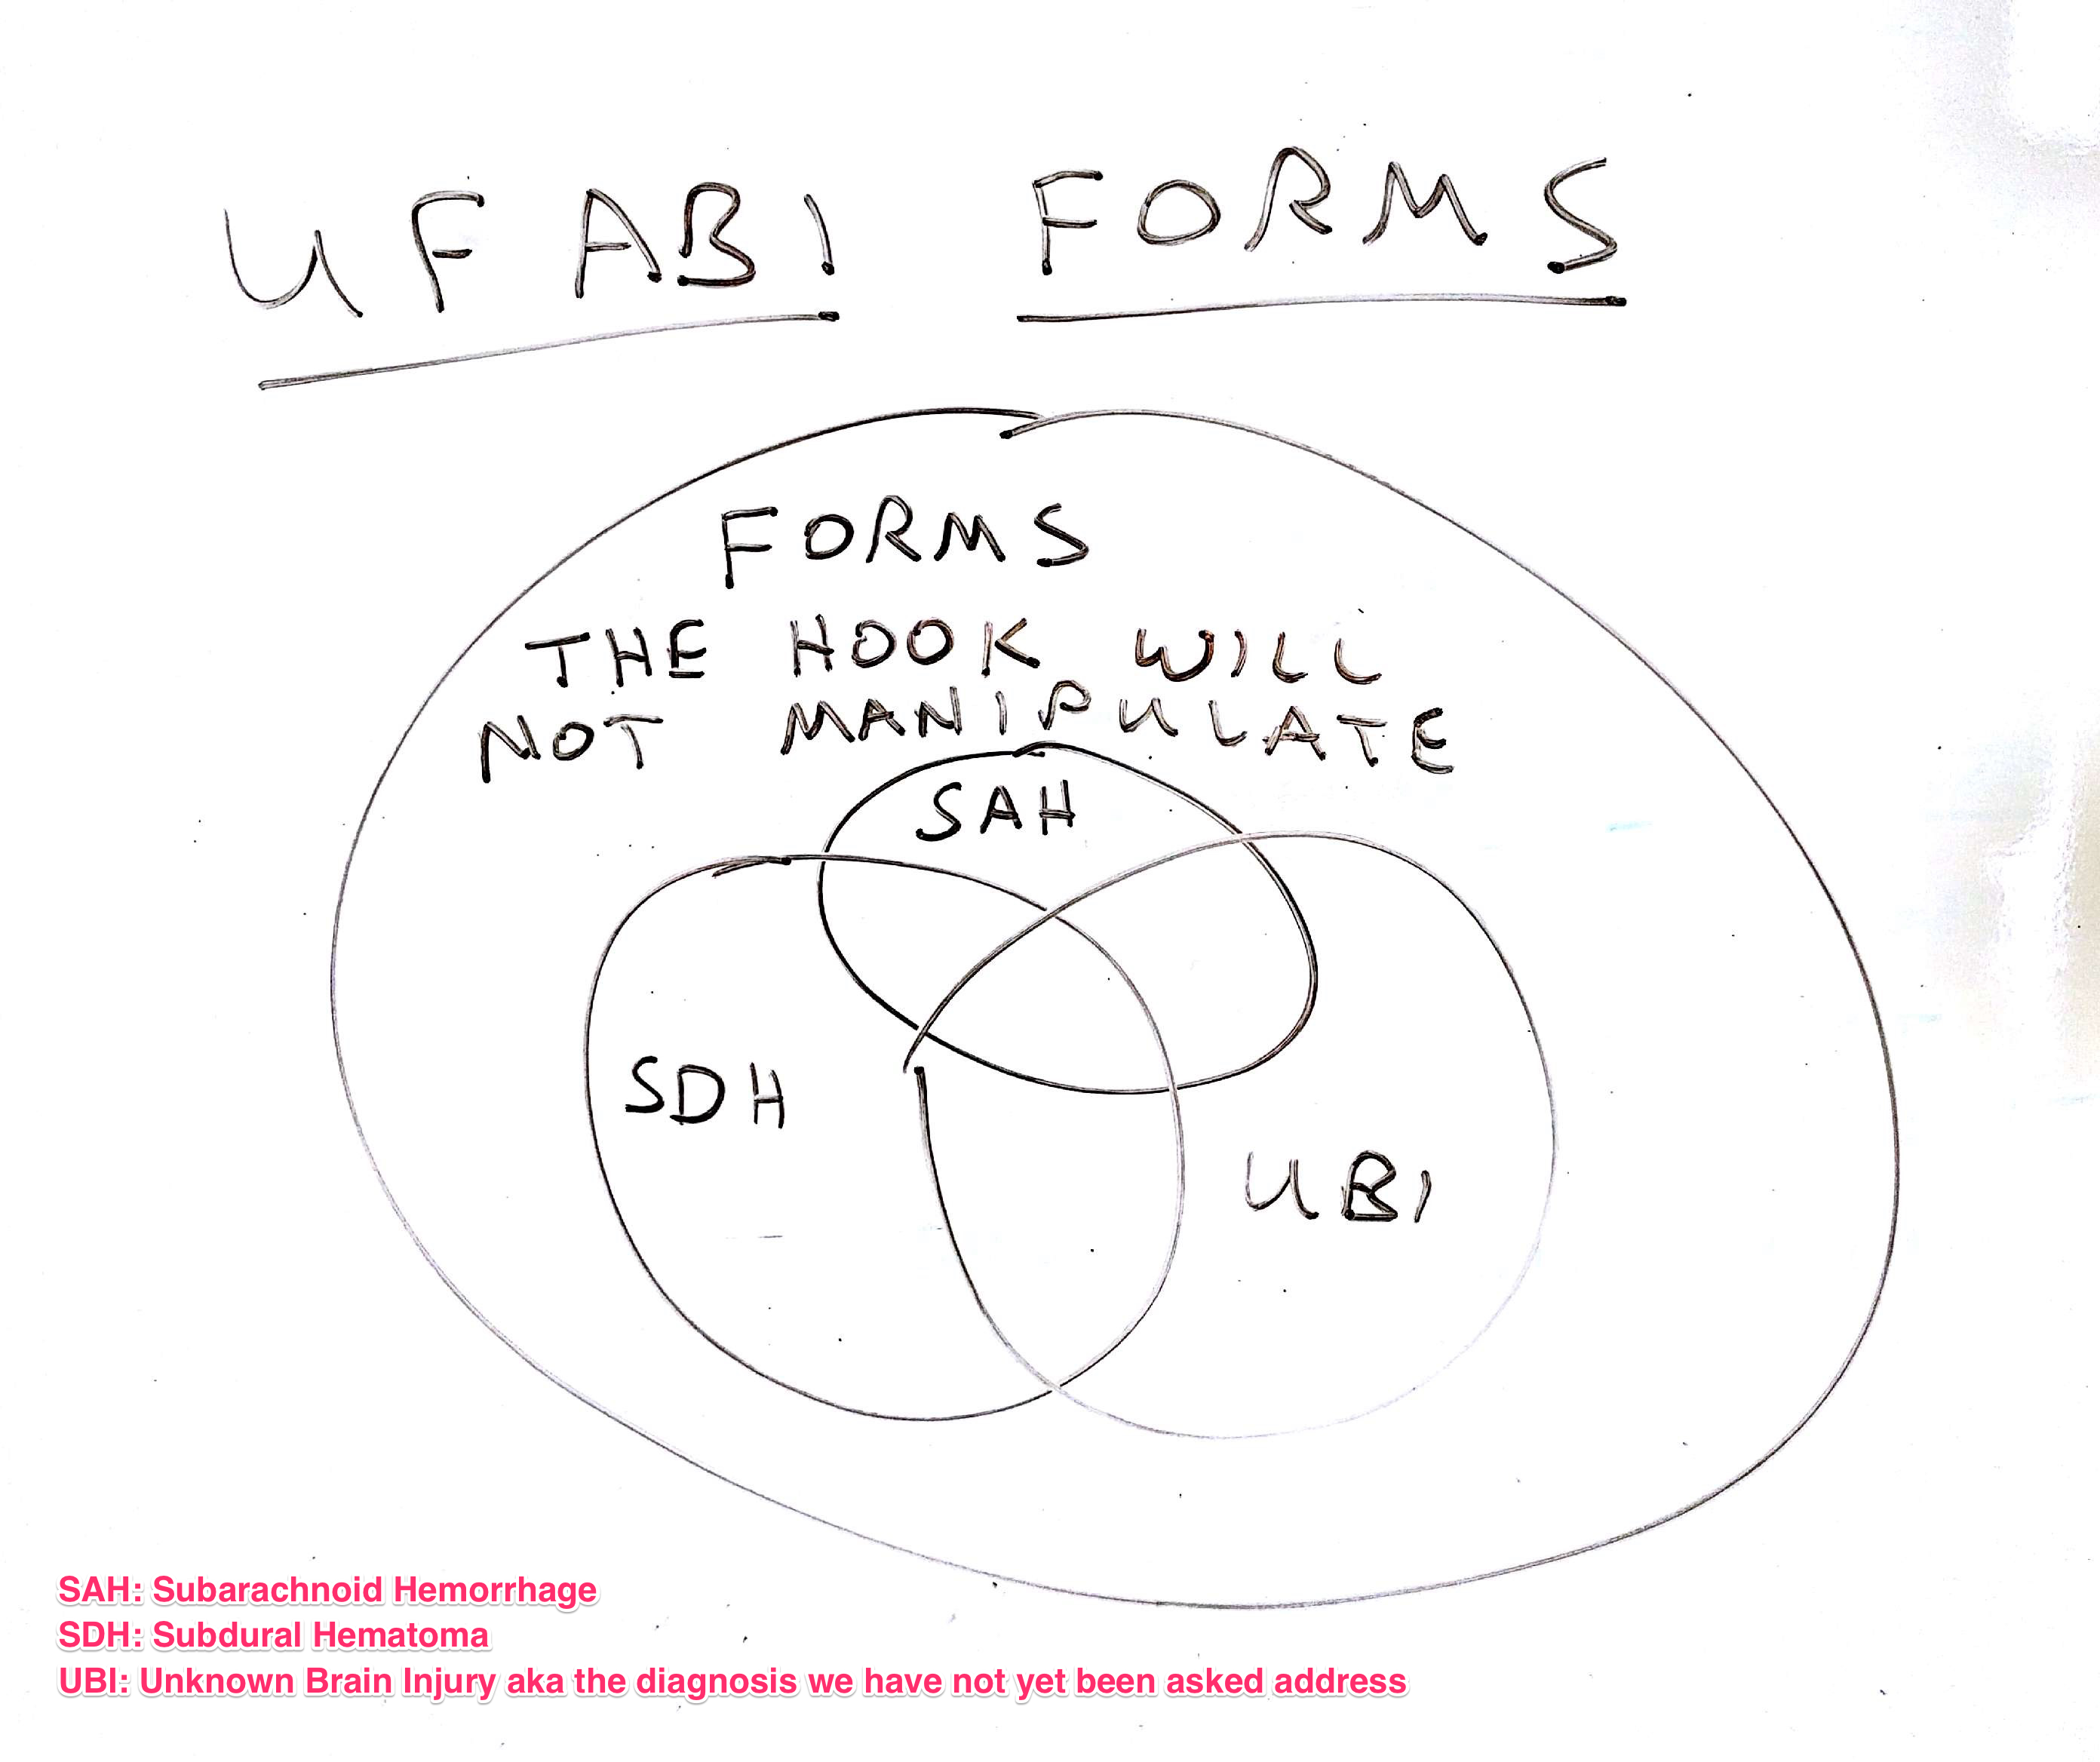 UF ABI FORMS
FORMS
THE HOOK WILL
NOT MANIPULATE
SAH
SDH
UBI
SAH: Subarachnoid Hemorrhage
SDH: Subdural Hematoma
UBI: Unknown Brain Injury aka the diagnosis we have not yet been asked address